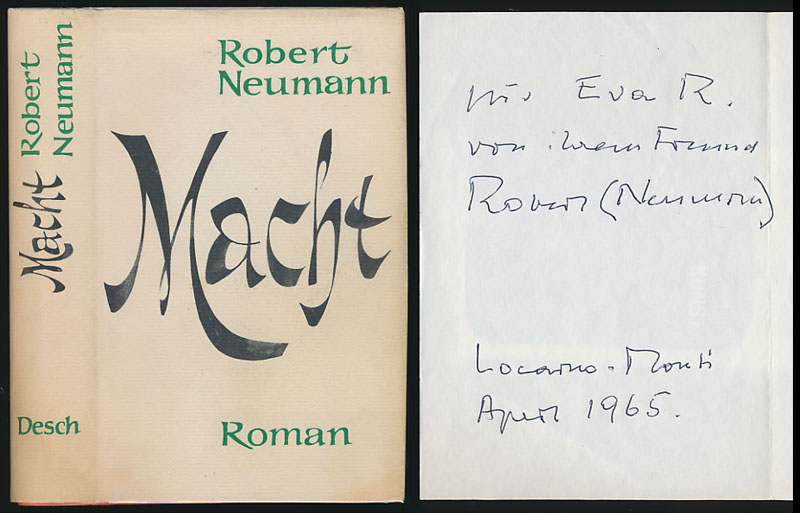 Robert
Neumann
Macht
Desch
Robert
Neumann
Macht
Roman
für Eva R.
von ihrem Freund
Robert (Neumann)
Locarno-Monti
April 1965.